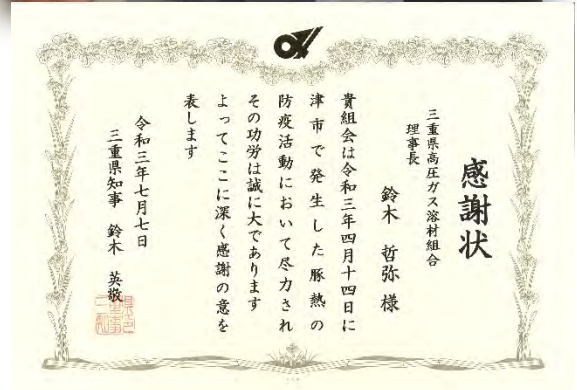 感謝状
三重県高圧ガス溶材組合
理事長
鈴木 哲弥 様
貴組会は令和三年四月十四日に
津市で発生した豚熱の
防疫活動において尽力され
その功労は誠に大であります
よってここに深く感謝の意を
表します
令和三年七月七日
三重県知事 鈴木 英敬